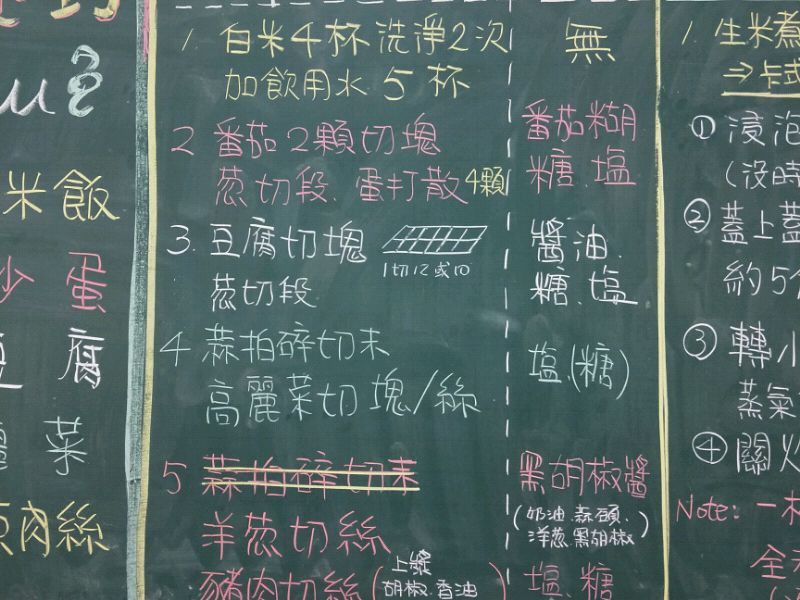 米飯
炒蛋
豆腐
麗菜
肉絲
1. 白米4杯洗淨2次
加飲用水5杯
2 番茄2顆切塊
蔥切段、蛋打散4顆
3. 豆腐切塊
1切12或10
蔥切段
4 蒜拍碎切末
高麗菜切塊/絲
5 蒜拍碎切末
洋蔥切絲
豬肉切絲(上漿
胡椒、香油)
無
番茄糊
糖、塩
醬油、
糖、塩
塩、(糖)
黑胡椒醬
(奶油、蒜頭、
洋蔥、黑胡椒)
塩、糖
1. 生米煮
⇒卡式
① 浸泡
(沒時
② 蓋上蓋
約5分
③ 轉小
蒸氣
④ 關火
Note: 一杯